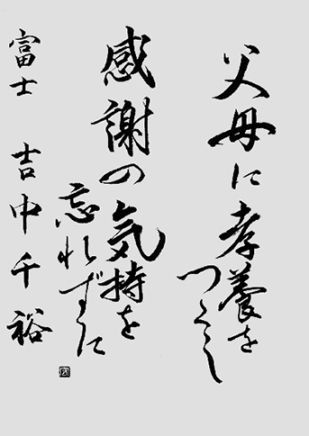 父母に孝養を
つくし
感謝の気持を
忘れずに
富士 吉中千裕